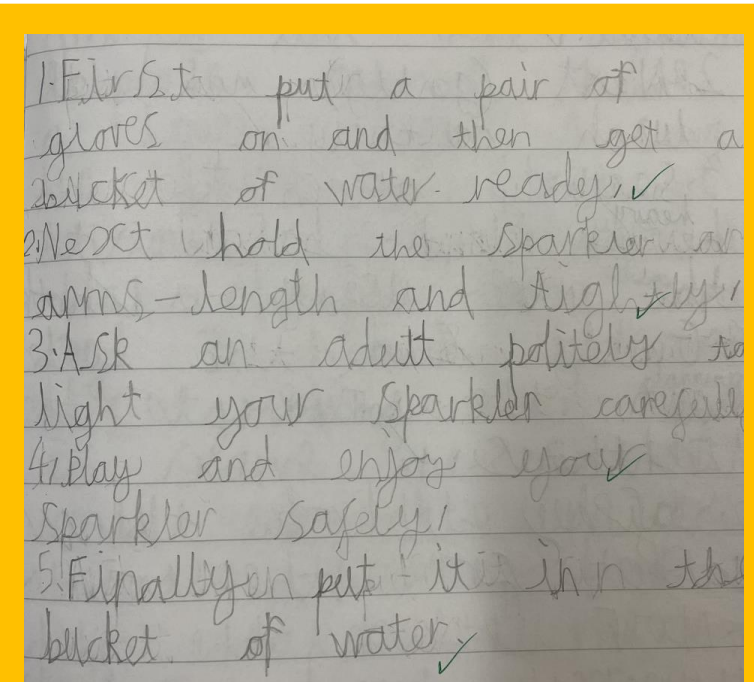 1.First put a pair of
gloves on and then get a
bucket of water ready.
2.Next hold the sparkler
arms-length and tightly.
3.Ask an adult politely to
light your sparkler
4.Play and enjoy your
sparkler safely.
5.Finally put it in the
bucket of water.